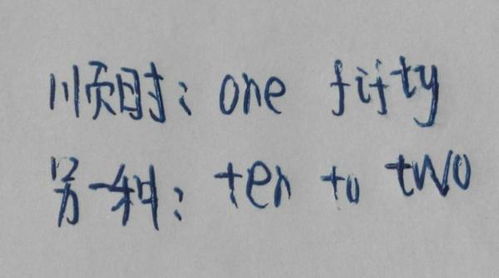 顺时：one fifty
另一种：ten to two